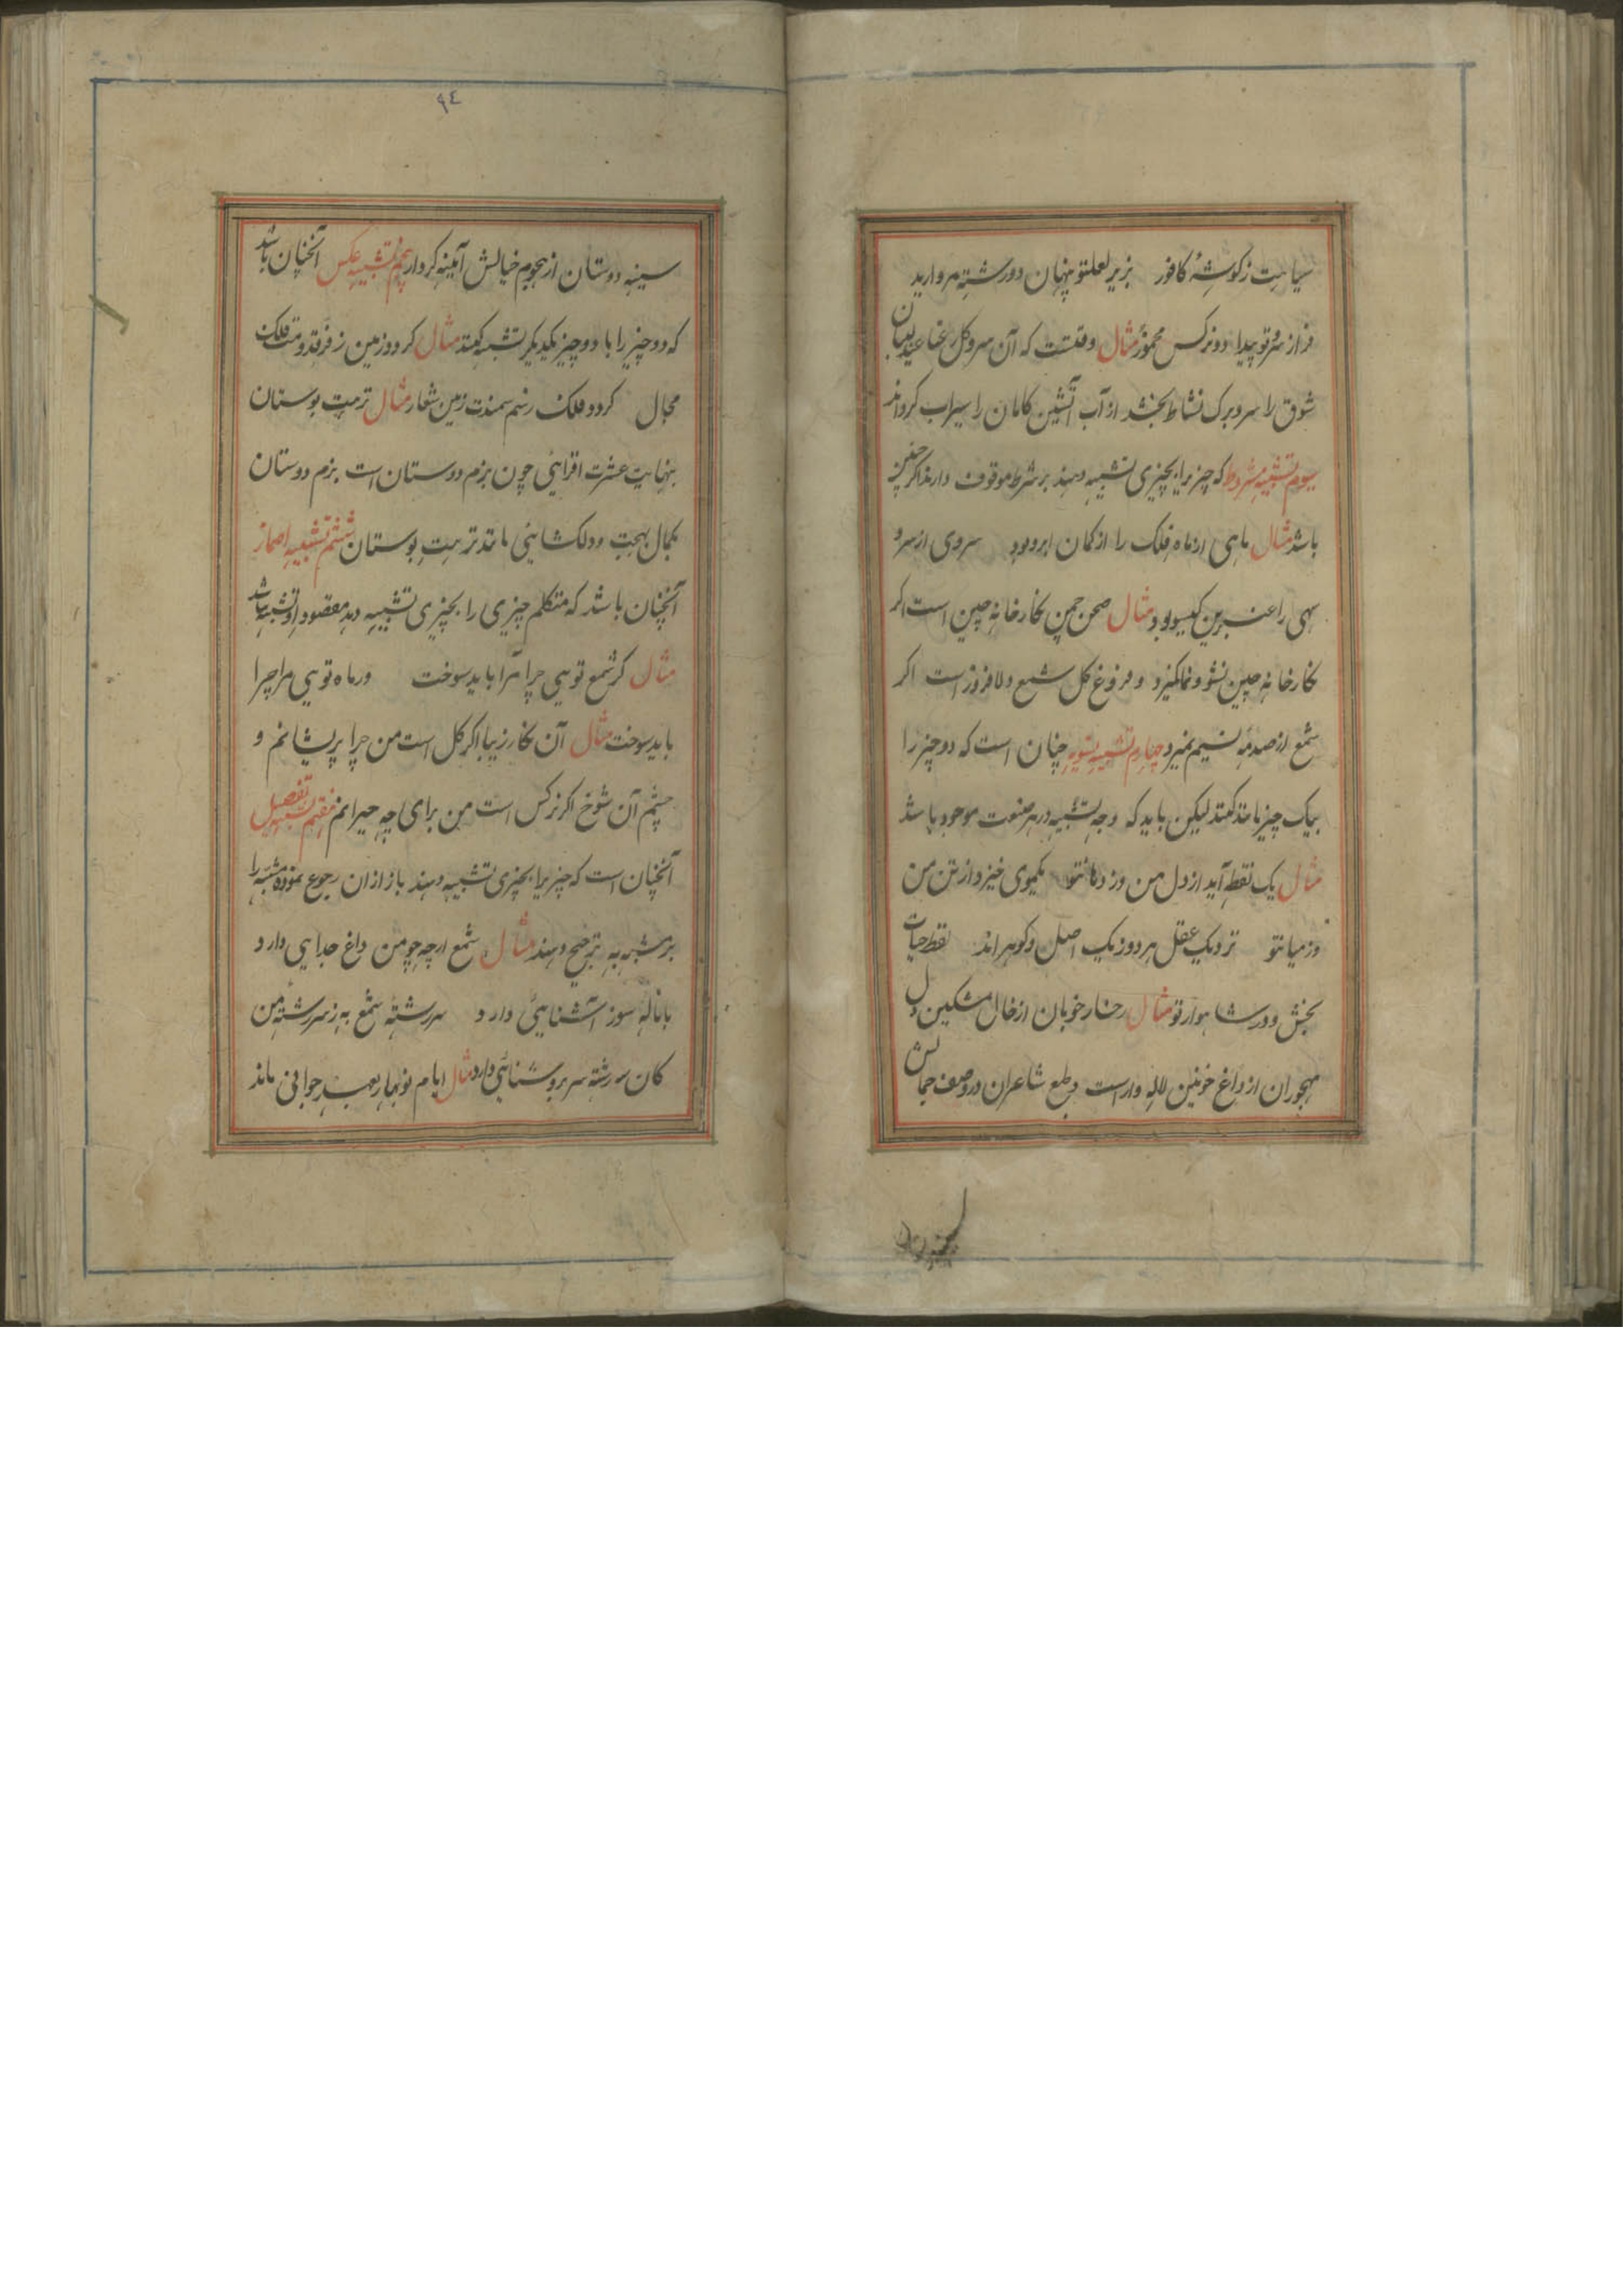 سیاهیت ز گوشهٔ کافور بزیر لعلتو پنهان دو رشته مروارید
فراز سرو تو پیدا دو نرکس مخمور مثال وقتست که آن سرو کل رعنا عندلیبان
شوق را سر و برک نشاط بخشد از آب آتشین کامان را سیراب کرداند
سیوم تشبیه مشروط که چیزیرا بچیزی تشبیه دهند بر شرط موقوف دارند اکر چنین
باشد مثال ماهی از ماه فلک را از کمان ابرو بود سروی ار سرو
سهی را عنبرین کیسو بود مثال صحن چمن نکارخانهٔ چین است اکر
نکارخانهٔ چین نشو و نما کیرد و فروغ کل شمع دلافروز است اکر
شمع از صدمهٔ نسیم نمیرد چهارم تشبیه تسویه چنان است که دو چیز را
بیک چیز مانند کنند لیکن باید که وجه تشبیه در هر صفت موجود باشد
مثال یک نقطه آید از دل من وز دهانتو یکموی خیزد از تن من
وز میانتو نزدیک عقل هر دو ز یک اصل و کوهراند نقط حیات
بخش و در شاهوار تو مثال رخسار خوبان از خال مشکین و دل
مهجوران از داغ خونین لاله وار است و طبع شاعران در وصف جمالش
٩٤
سینه دوستان از هجوم خیالش آئینه کردار پنجم تشبیه عکس آنچنان باشد
که دو چیز را با دو چیز یکدیکر تشبیه کنند مثال کردد زمین ز فرقدومت فلک
مجال کردد فلک ز سم سمندت زمین شعار مثال ترتیب بوستان
بنهایت عشرت افزائی چون بزم دوستان است بزم دوستان
بکمال بهجت و دلکشائی مانند ترتیب بوستان ششم تشبیه اضمار
آنچنان باشد که متکلم چیزی را بچیزی تشبیه دهد مقصود او تشبیه باشد
مثال کر شمع تویی چرا مرا باید سوخت ور ماه تویی مرا چرا
باید سوخت مثال آن نکار زیبا اکر کل است من چرا پریشانم و
چشم آن شوخ اکر نرکس است من برای چه حیرانم هفتم تشبیه تفضیل
آنچنان است که چیزیرا بچیزی تشبیه دهند باز از ان رجوع نموده مشبه را
بر مشبه به ترجیح دهند مثال شمع ارچه چو من داغ جدایی دارد
با نالهٔ سوز آشنایئ دارد سررشتهٔ شمع به ز سررشتهٔ من
کان سررشته سر بروشنائی دارد مثال ایام نوبهار بعهد جوانی ماند